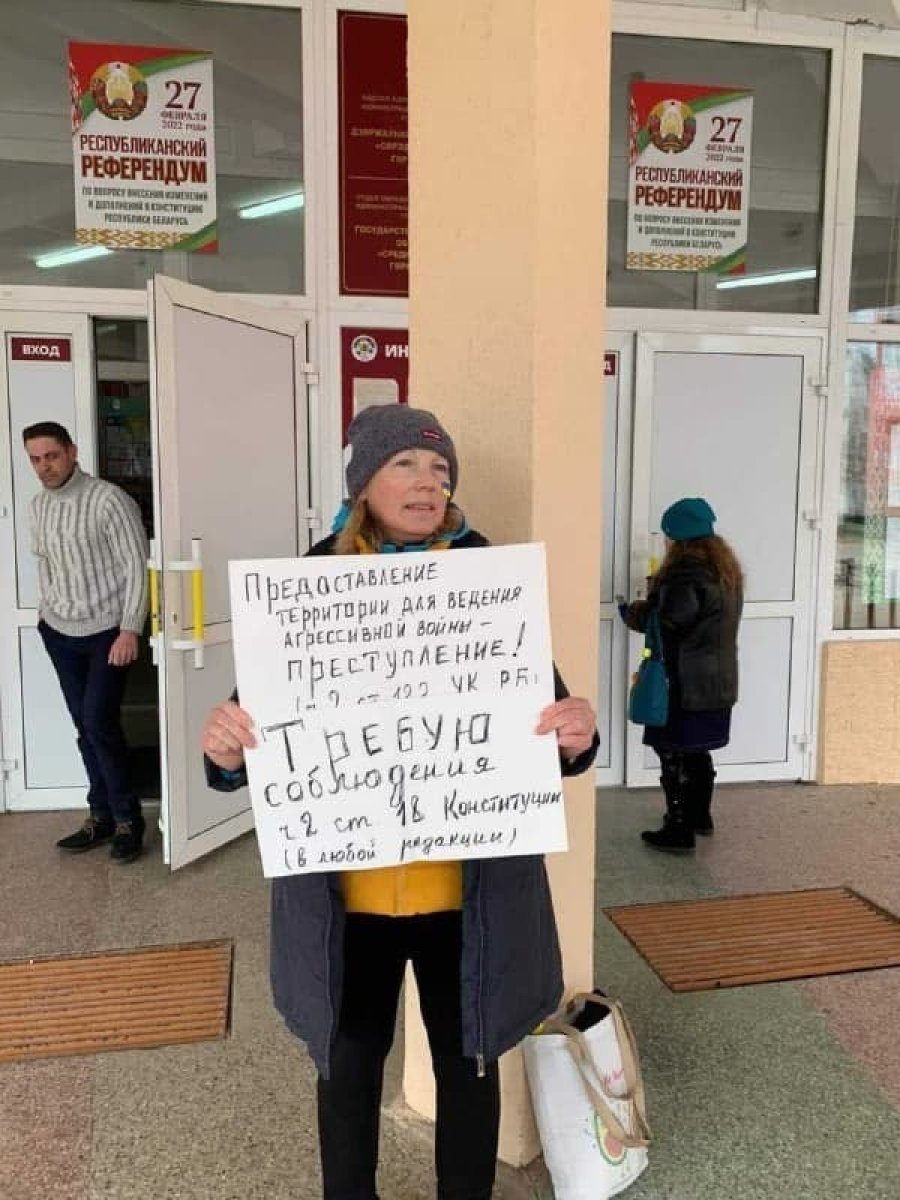 27
ФЕВРАЛЯ
2022 года
РЕСПУБЛИКАНСКИЙ
РЕФЕРЕНДУМ
ПО ВОПРОСУ ВНЕСЕНИЯ ИЗМЕНЕНИЙ
И ДОПОЛНЕНИЙ В КОНСТИТУЦИЮ
РЕСПУБЛИКИ БЕЛАРУСЬ
27
ФЕВРАЛЯ
2022 года
РЕСПУБЛИКАНСКИЙ
РЕФЕРЕНДУМ
ПО ВОПРОСУ ВНЕСЕНИЯ ИЗМЕНЕНИЙ
И ДОПОЛНЕНИЙ В КОНСТИТУЦИЮ
РЕСПУБЛИКИ БЕЛАРУСЬ
ВХОД
ИН
Предоставление
территории для ведения
агрессивной войны -
преступление!
УК РБ
Требую
соблюдения
ч 2 ст 18 Конституции
(в любой редакции)